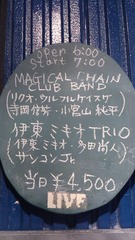 open 6:00
Start 7:00
MAGICAL CHAIN
CLUB BAND
(リクオ・ウルフルケイスケ
寺岡信芳・小宮山純平)
伊東ミキオTRIO
(伊東ミキオ・多田尚人
サンコンJr.)
当日¥4,500
LIVE